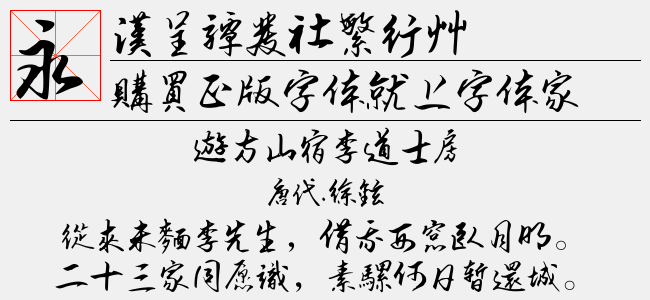 永
漢呈譚發社繁行艸
購買正版字体就上字体家
遊方山宿李道士房
唐代.徐鉉
從來未麵李先生，借我西窓臥月明。
二十三家同愿識，素騾何日暫還城。